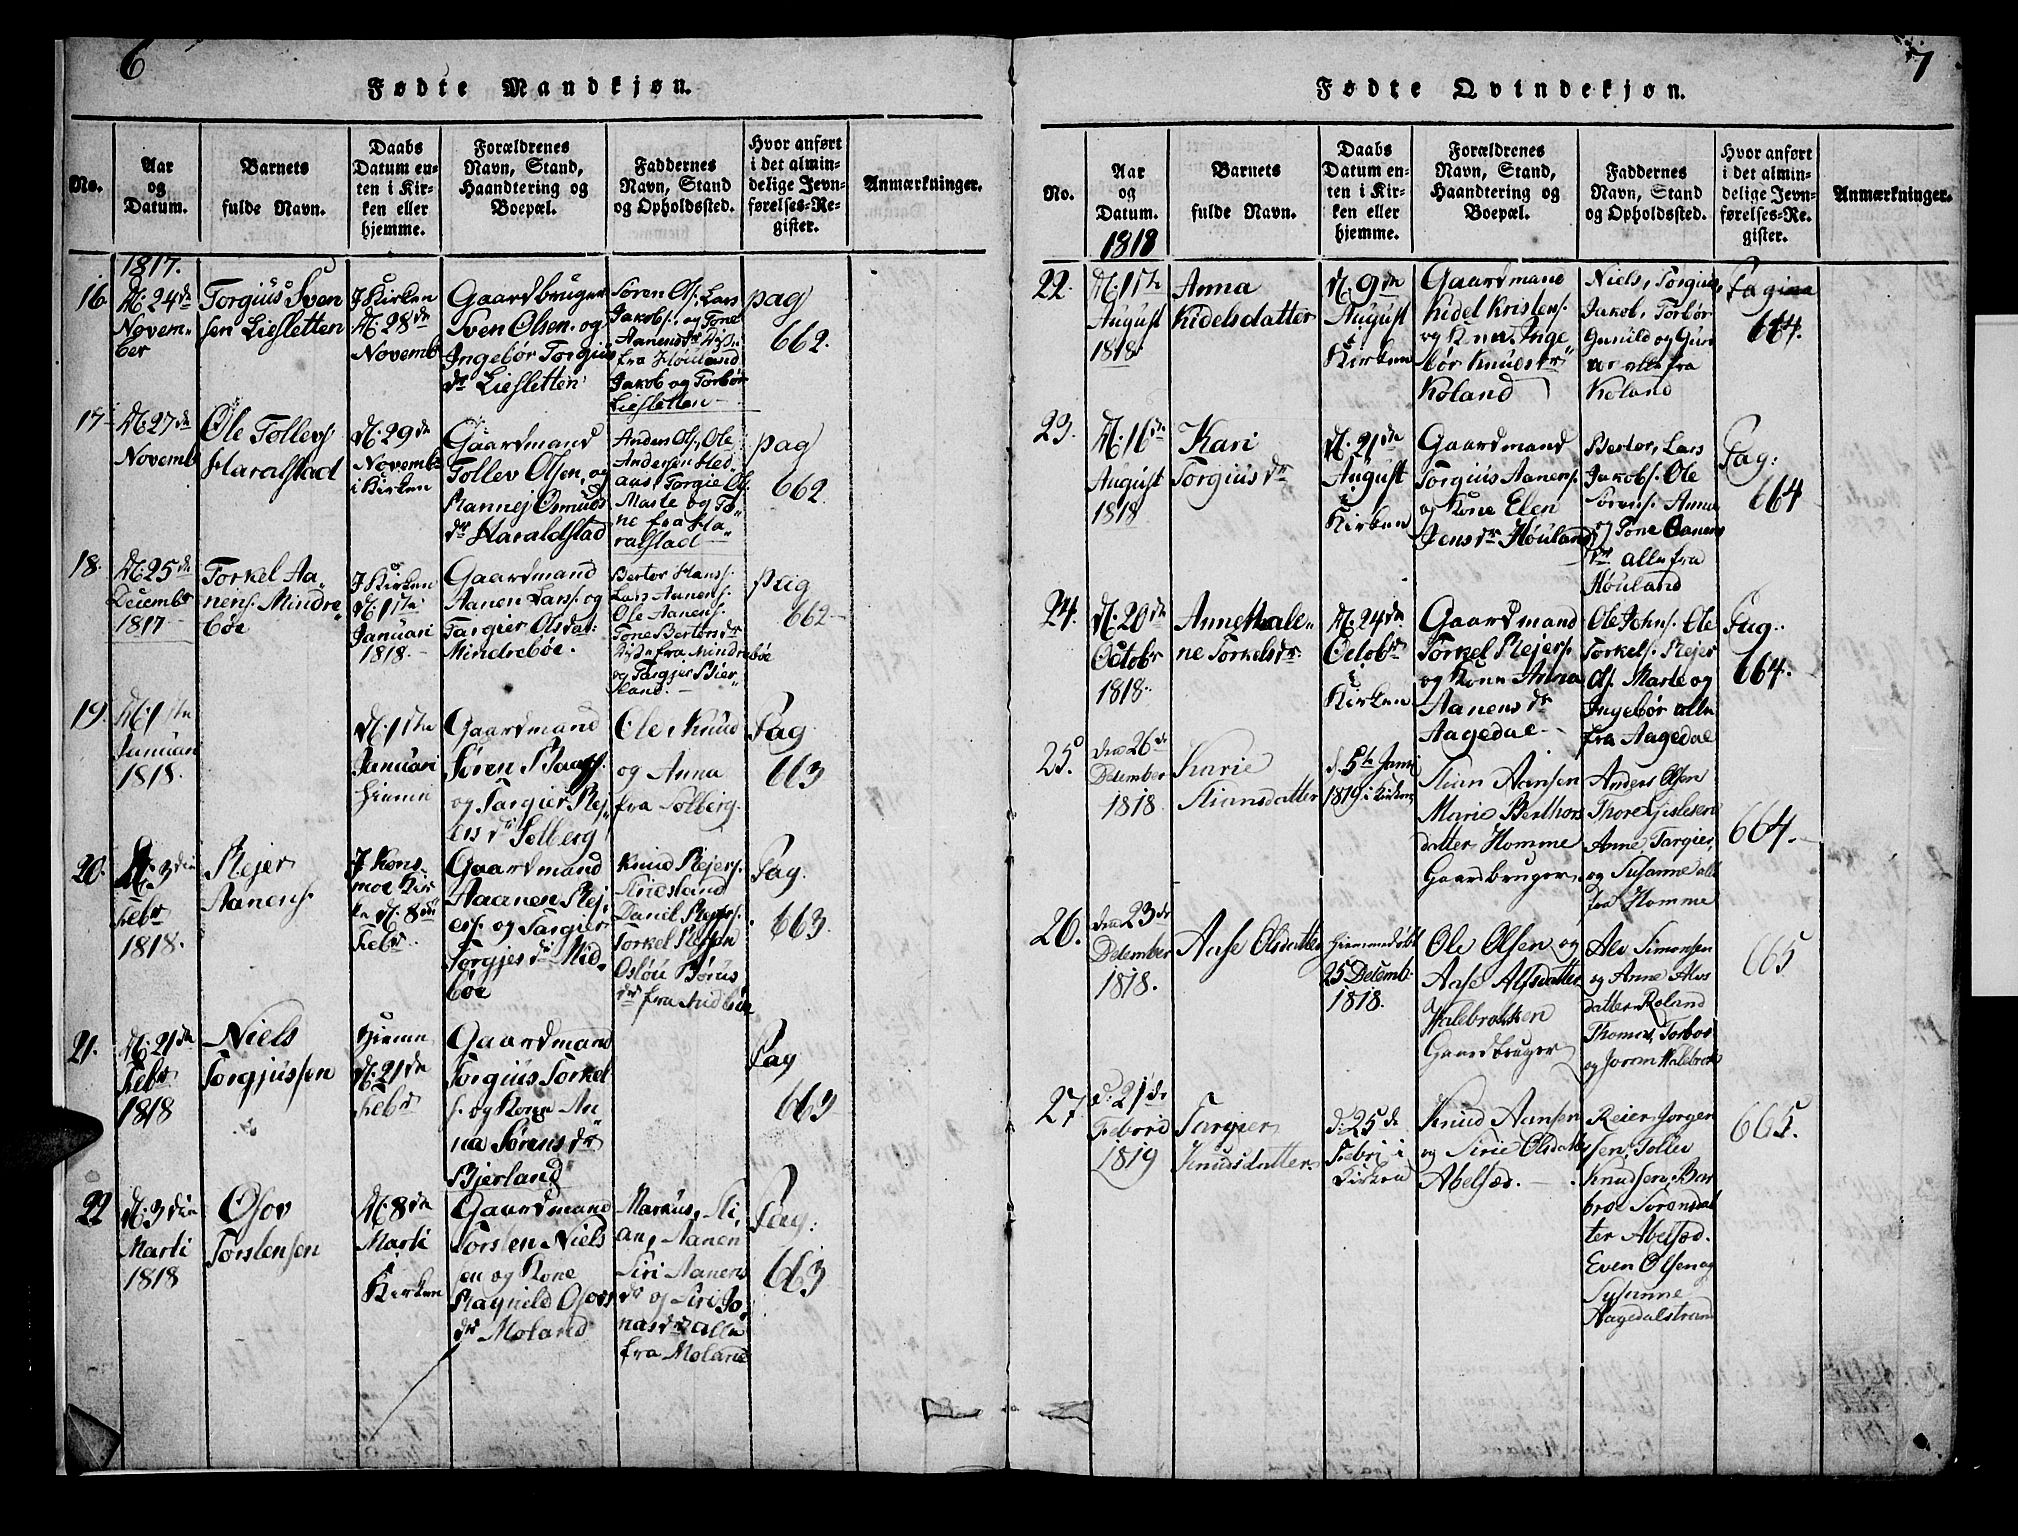 6
Fødte Mandkjøn.
No.
Aar
og
Datum.
Barnets
fulde Navn.
Daabs
Datum en-
ten i Kir-
ken eller
hjemme.
Forældrenes
Navn, Stand,
Haandtering og
Boepæl.
Faddernes
Navn, Stand
og Opholdssted.
Hvor anført
i det almin-
delige Jevn-
førelses-Re-
gister.
Anmærkninger.
1817.
16.
D. 24de
Novem-
ber
Torgius Sven
sen Liesletten
J Kirken
D. 28de
Novemb
Gaardbruger
Sven Olsen og
Ingebør Torgius
dr Liesletten
Søren Ols. Lars
Jakobs. og Tone
Aanensdr
fra Høuland
Jakob og Torbør
Liesletten
pag
662.
17
D. 27de
Novemb
Ole Tollevs.
Haralstad
D. 29de
Novemb
i Kirken
Gaardmand
Tollev Olsen, og
Rannej Osmuds
dr Haraldstad
Anders Ols, Ole
Andersen Hed-
aas, Torgie Ols.
Marte og To-
ne fra Ha-
ralstad
pag
662.
18.
D. 25de
Decembr
1817
Torkel Aa-
nens. Mindre-
böe
J Kirken
D. 1ste
Januari
1818.
Gaardmand
Aanen Lars. og
Targier Olsdat:
Mindrebøe.
Bertor Hans.
Lars Aanens.
Ole Aanens.
Tone Bertorsdr
fra Mindrebøe
og Targjer Bier-
land.
pag
662
19.
D. 1ste
Januari
1818.
D. 1ste
Januari
hiemme
Gaardmand
Søren
og Targier Rej-
ersdr Solberg
Ole, Knud
og Anna
fra Solberg.
Pag
663
20.
D. 3die
Febr
1818.
Rejer
Aanens.
J Kons-
moe Kir-
ke D. 8de
Febr.
Gaardmand
Aanen Rej-
ers. og Targier
Torgjesdr Mid-
böe
Knud Rejers.
Danil Rejers.
Torkel
fra Midböe
Pag.
663.
21.
D. 21de
Febr
1818
Niels
Torgjussen
hiemme
D. 21de
Febr
Gaardmand
Torgius Torkel
s. og Kone An-
na Sørensdr
Bjerland
Pag
663
22
D. 3die
Marti
1818
Osov
Torstensen
D. 8de
Marti
i
Kirken
Gaardmand
Torsten Niels
en og Kone
Ragnild Osovs
dr Moland
Markus, Sti-
an, Aanen
Siri Aanens
dr og Siri Jo-
nasdr alle
fra Moland
Pag:
663
7
Fødte Qvindekjøn.
No.
Aar
og
Datum.
1818
Barnets
fulde Navn.
Daabs
Datum en-
ten i Kir-
ken eller
hjemme.
Forældrenes
Navn, Stand,
Haandtering og
Boepæl.
Faddernes
Navn, Stand
og Opholdssted.
Hvor anført
i det almin-
delige Jevn-
førelses-Re-
gister.
Anmærkninger.
22.
D. 1ste
August
1818
Anna
Kidelsdatter
D. 9de
August
Kirken
Gaardmand
Kidel Kristens.
og Kone Inge
bör Knudsdr
Köland
Niels, Torgius,
Jakob, Torbör
Gunild og Gun
alle fra
Köland
Pagina
664.
23.
D. 16de
August
1818
Kari
Torgiusdr
D. 21de
August
i
Kirken
Gaardmand
Torgius Aanens.
og Kone Elen
Jensdr Høuland
Bertor, Lars
Jakobs. Ole
Sørens. Anna
og Tone Aanens
dr alle fra
Høuland
Pag:
664
24.
D. 20de
Octobr
1818.
Anne Male-
ne Torkelsdr.
D. 24de
Octobr
i
Kirken
Gaardmand
Torkel Rejers.
og Kone Anna
Aanensdr
Aagedal
Ole Johns. Ole
Torkels. Rejer
Ols. Marte og
Ingebør alle
fra Aagedal
Pag.
664.
25.
den 26de
Desember
1818.
Karie
Stiansdatter
d. 5te Janri
1819 i Kirken
Stian Aansen
Marie Berthors
datter Homme
Gaardbruger
Anders Olsen
Thore Gislesen
Anne, Targier,
og Susanne alle
fra Homme
664.
26.
den 23de
Desember
1818.
Aase Olsdatter
hiemmedøbt
25 Decemb
1818.
Ole Olsen og
Aase Alfsdatter
Walebrokken
Gaardbruger
Alv Simonsen
og Anne Alvs
datter Roland
Thomas, Torbor
og Joren Walebrok
665
27
d: 21de
Febori
1819
Targier
Knudsdatter
d: 25de
Febri i
Kirken
Knud Aansen
og Sirie Olsdatter
Abelsæd.
Reier Jorgen
sen, Tollev
Knudsen, Bar
bro Sorensdat
ter Abelsæd.
Even Olsen og
Susanne
Aagedalstrand
665.